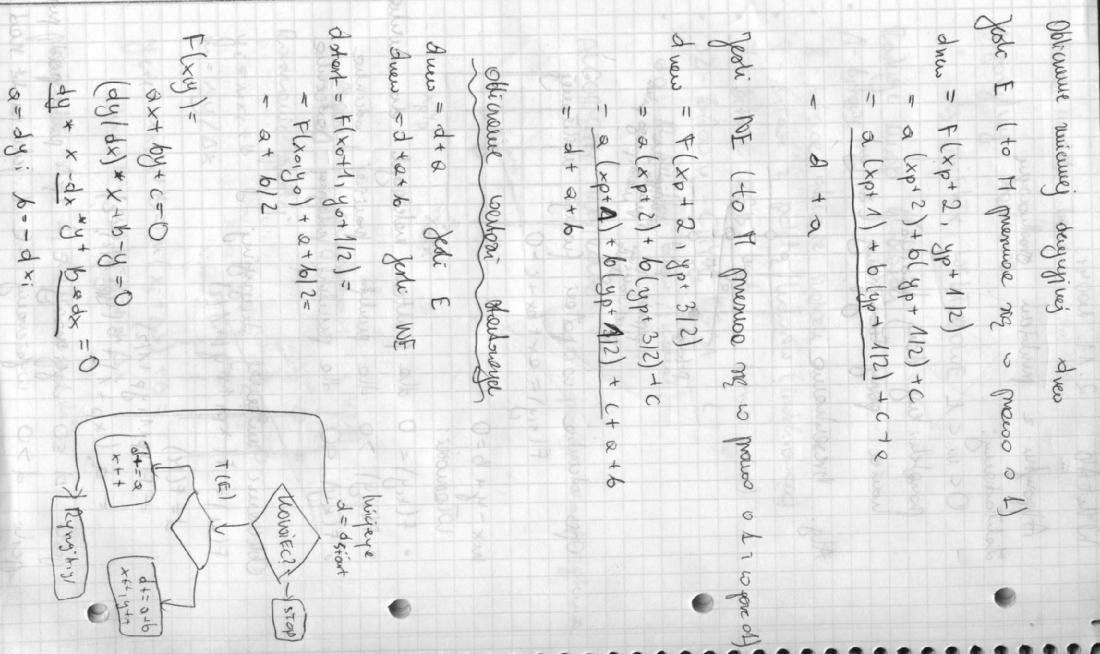 Obliczanie zmiennej decyzyjnej dnew
Jeśli E (to M przesuwa się w prawo o 1)
dnew = F(xp+2, yp+1/2)
= a(xp+2)+b(yp+1/2)+c
= a(xp+1)+b(yp+1/2)+c+a
= d+a
Jeśli NE (to M przesuwa się w prawo o 1 i w górę o 1)
dnew = F(xp+2, yp+3/2)
= a(xp+2)+b(yp+3/2)+c
= a(xp+1)+b(yp+1/2)+c+a+b
= d+a+b
Obliczanie wartości startowych
dnew = d+a Jeśli E
dnew = d+a+b Jeśli NE
dstart = F(x0+1, y0+1/2) =
= F(x0,y0)+a+b/2 =
= a+b/2
F(x,y) =
ax+by+c=0
(dy/dx)*x+b-y=0
dy*x-dx*y+b*dx=0
a=dy; b=-dx;
Inicjacja
d=dstart
KONIEC?
STOP
T(E)
d+=a
x++
d+=a+b
x++,y++
Rysuj(x,y)